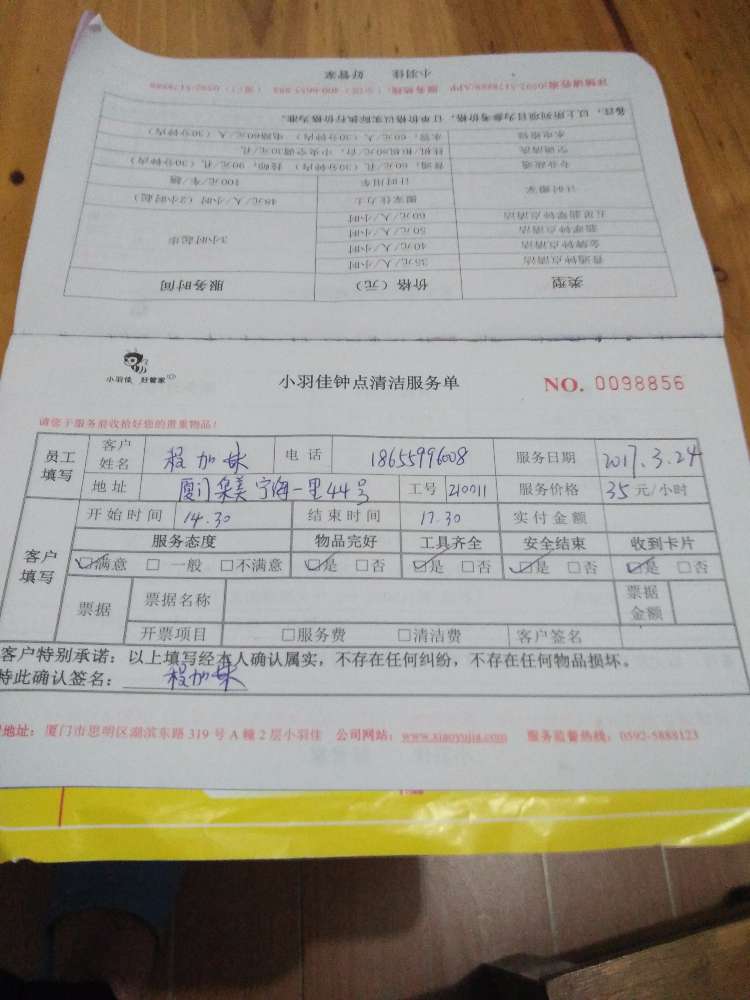 小羽佳 好管家
详情请咨询0592-5178888/APP
备注：以上所列项目为参考价格，订单价格以实际执行价格为准。
类型 价格（元） 服务时间
普通钟点清洁 35元/人/小时 3小时起步
金牌钟点清洁 40元/人/小时
翡翠钟点清洁 50元/人/小时
五星翡翠钟点清洁 60元/人/小时
计时搬家 搬家佳力士 48元/人/小时（2小时起）
计时用车 100元/车/趟
专业疏通 普通，60元/孔（30分钟内）
空调清洗 挂机/柜机80元/台，中央空调30元/孔
水电维修 水管，60元/人（30分钟内） 电路60元/人（30分钟内）
小羽佳 好管家
小羽佳钟点清洁服务单
NO. 0098856
请您于服务前收拾好您的贵重物品！
员工填写
客户姓名 程加妹 电话 18655996008 服务日期 2017.3.24
地址 厦门集美宁海一里44号 工号 210011 服务价格 35 元/小时
客户填写
开始时间 14.30 结束时间 17.30 实付金额
服务态度 物品完好 工具齐全 安全结束 收到卡片
☑满意 □一般 □不满意 ☑是 □否 ☑是 □否 ☑是 □否 ☑是 □否
票据 票据名称 票据金额
开票项目 □服务费 □清洁费 客户签名
客户特别承诺：以上填写经本人确认属实，不存在任何纠纷，不存在任何物品损坏。
特此确认签名： 程加妹
地址：厦门市思明区湖滨东路319号A幢2层小羽佳 公司网站：www.xiaoyujia.com 服务监督热线：0592-5888123